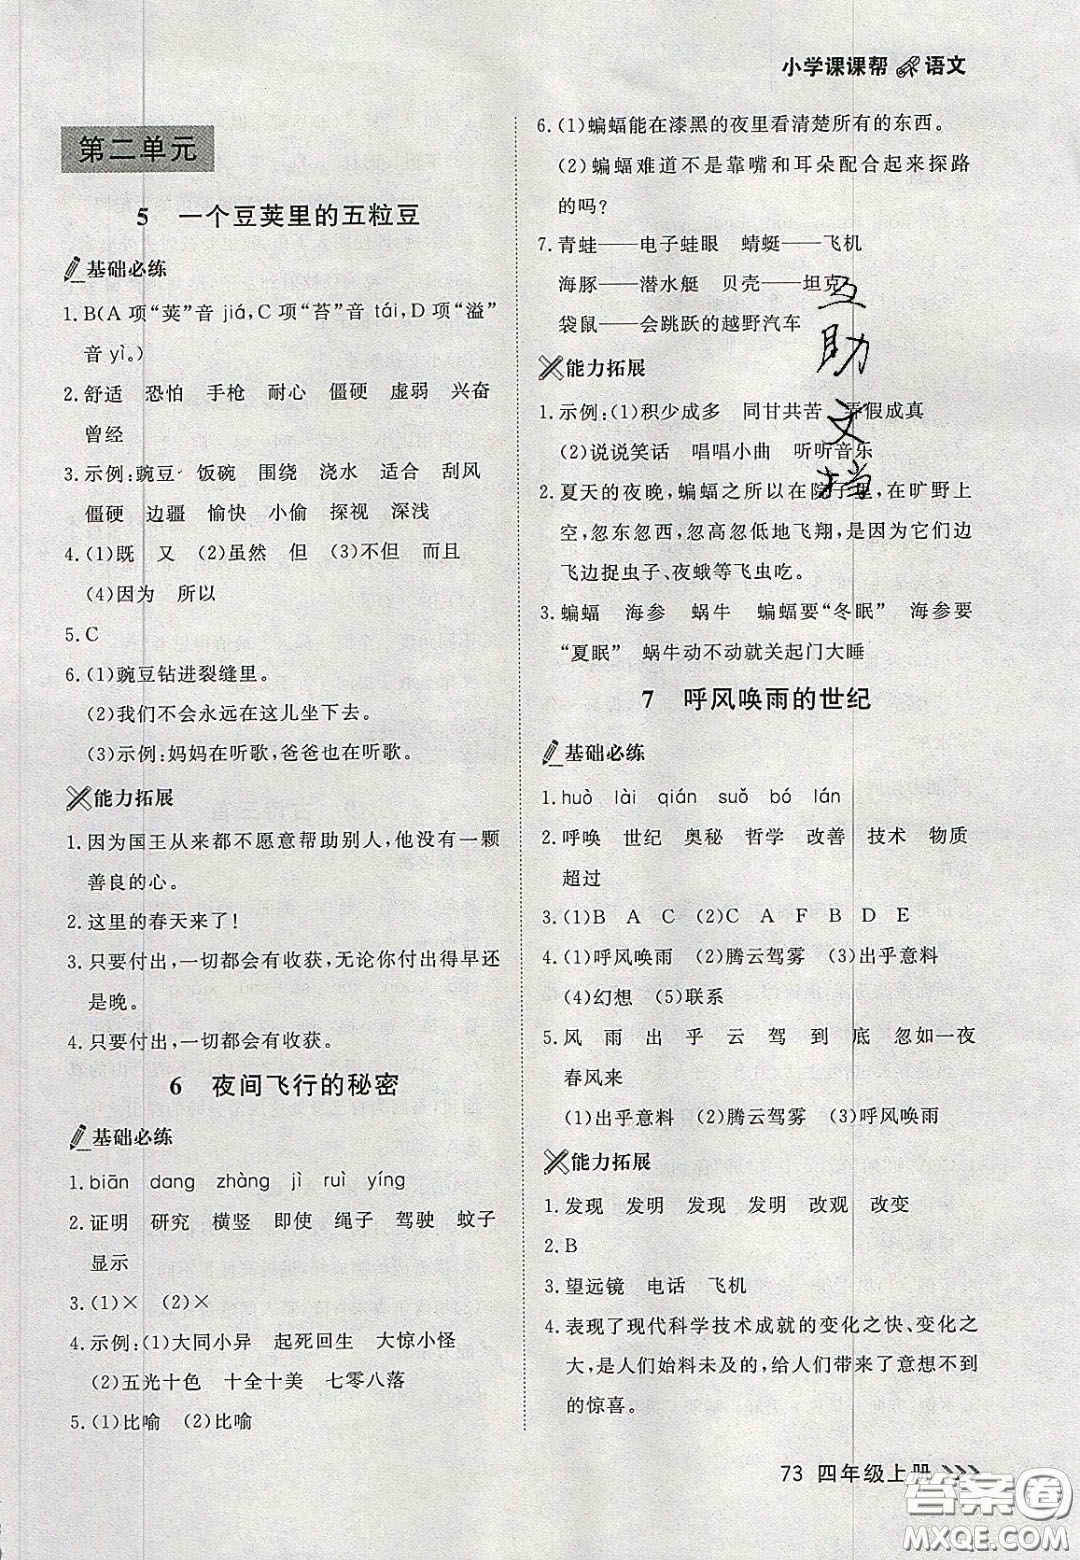 小学课课帮 语文
第二单元
5 一个豆荚里的五粒豆
基础必练
1. B(A 项“荚”音 jiá,C 项“苔”音 tái,D 项“溢”
音 yì。)
2. 舒适 恐怕 手枪 耐心 僵硬 虚弱 兴奋
曾经
3. 示例:豌豆 饭碗 围绕 浇水 适合 刮风
僵硬 边疆 愉快 小偷 探视 深浅
4. (1)既 又 (2)虽然 但 (3)不但 而且
(4)因为 所以
5. C
6. (1)豌豆钻进裂缝里。
(2)我们不会永远在这儿坐下去。
(3)示例:妈妈在听歌,爸爸也在听歌。
能力拓展
1. 因为国王从来都不愿意帮助别人,他没有一颗
善良的心。
2. 这里的春天来了!
3. 只要付出,一切都会有收获,无论你付出得早还
是晚。
4. 只要付出,一切都会有收获。
6 夜间飞行的秘密
基础必练
1. biān dang zhàng jì ruì yíng
2. 证明 研究 横竖 即使 绳子 驾驶 蚊子
显示
3. (1)× (2)×
4. 示例:(1)大同小异 起死回生 大惊小怪
(2)五光十色 十全十美 七零八落
5. (1)比喻 (2)比喻
6. (1)蝙蝠能在漆黑的夜里看清楚所有的东西。
(2)蝙蝠难道不是靠嘴和耳朵配合起来探路
的吗?
7. 青蛙——电子蛙眼 蜻蜓——飞机
海豚——潜水艇 贝壳——坦克
袋鼠——会跳跃的越野汽车
能力拓展
1. 示例:(1)积少成多 同甘共苦 弄假成真
(2)说说笑话 唱唱小曲 听听音乐
2. 夏天的夜晚,蝙蝠之所以在院子里,在旷野上
空,忽东忽西,忽高忽低地飞翔,是因为它们边
飞边捉虫子、夜蛾等飞虫吃。
3. 蝙蝠 海参 蜗牛 蝙蝠要“冬眠” 海参要
“夏眠” 蜗牛动不动就关起门大睡
7 呼风唤雨的世纪
基础必练
1. huò lài qián suǒ bó lán
2. 呼唤 世纪 奥秘 哲学 改善 技术 物质
超过
3. (1)B A C (2)C A F B D E
4. (1)呼风唤雨 (2)腾云驾雾 (3)出乎意料
(4)幻想 (5)联系
5. 风 雨 出 乎 云 驾 到 底 忽如一夜
春风来
(1)出乎意料 (2)腾云驾雾 (3)呼风唤雨
能力拓展
1. 发现 发明 发现 发明 改观 改变
2. B
3. 望远镜 电话 飞机
4. 表现了现代科学技术成就的变化之快、变化之
大,是人们始料未及的,给人们带来了意想不到
的惊喜。
73 四年级上册
互助文档
答案圈
MXQE.COM